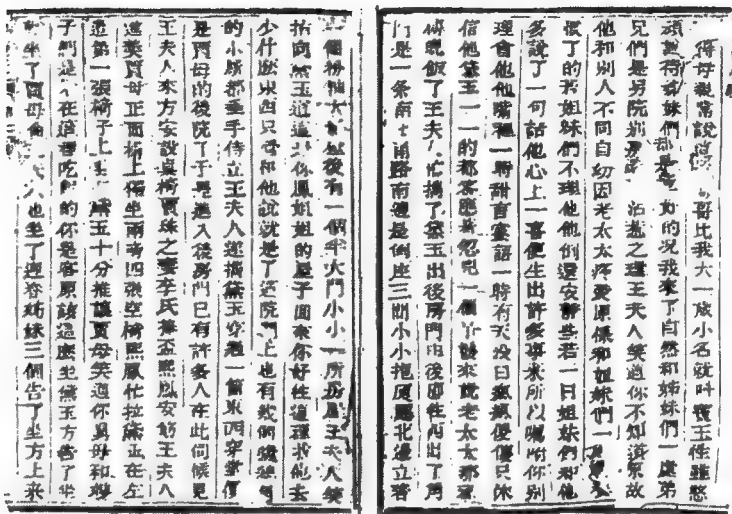 得母親常說這哥比我大一歲小名就叫寶玉性雖憨
頑說待姊妹們却是極好的況我來了自然和姊妹們一處弟
兄們是另院別房沾惹之理王夫人笑道你不知道原故
他和別人不同自幼因老太太疼愛原係和姐妹們一
慣了的若姐妹們不理他他倒還安靜些若一日姐妹們和他
多說了一句話他心上一喜便生出許多事來所以囑咐你別
理會他他嘴裡一時甜言蜜語一時有天沒日瘋瘋傻傻只休
信他黛玉一一的都答應着忽見一個丫鬟來說老太太那裡
傳晚飯了王夫人忙携了黛玉出後房門由後廊往西出了角
門是一条南北甬路南邊是倒座三間小小抱厦廳北邊立着
一個粉油大影壁後有一個半大門小小一所房屋王夫人笑
指向黛玉道這是你鳳姐姐的屋子回來你好往這裡找他去
少什麽東西只管和他說就是了這院門上也有幾個纔總角
的小厮都垂手侍立王夫人遂携黛玉穿過一個東西穿堂便
是賈母的後院了于是進入後房門已有許多人在此伺候見
王夫人來方安設桌椅賈珠之妻李氏捧盃熙鳳安箸王夫人
進羹賈母正面榻上獨坐兩旁四張空椅熙鳳忙拉黛玉在左
邊第一張椅子上坐下黛玉十分推讓賈母笑道你舅母和嫂
子們是不在這裡吃飯的你是客原該這麽坐黛玉方告了坐
坐了賈母命人也坐了迎春姊妹三個告了坐方上來